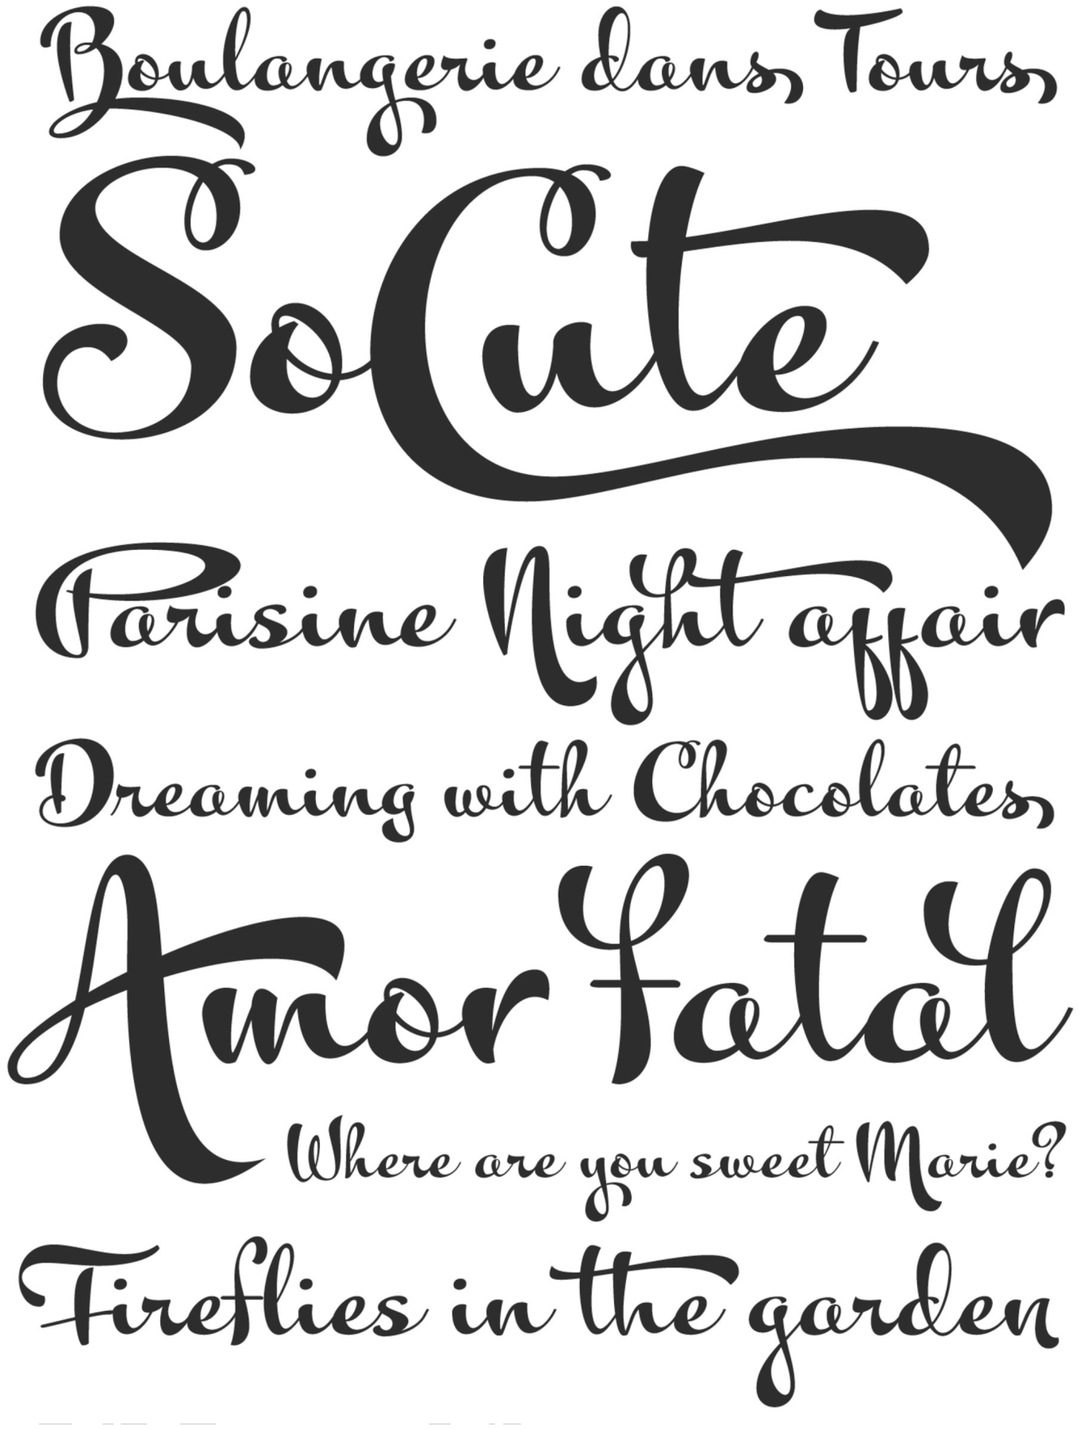 Boulangerie dans Tours
So Cute
Parisine Night affair
Dreaming with Chocolates
Amor fatal
Where are you sweet Marie?
Fireflies in the garden